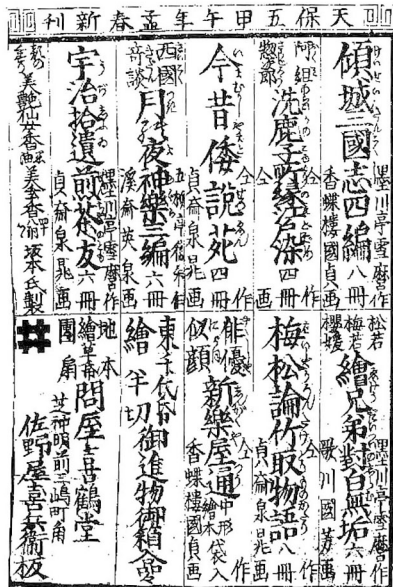 天保五甲午年孟春新刊
傾城三國志四編 八冊
墨川亭雪麿作
香蝶樓國貞画
阿組
惣郎
洗鹿子所縁江戸染 四冊
仝 作
仝 画
今昔倭説苑 四冊
仝 作
貞斎泉晁画
西國
奇談
月夜神樂三編 六冊
五柳亭徳升作
溪斎英泉画
宇治拾遺煎茶友 六冊
墨川亭雪麿作
貞斎泉晁画
美艶仙女香
美玄香
坂本氏製
松若
梅若
櫻姫
繪兄弟對白無垢 六冊
墨川亭雪麿作
歌川國芳画
梅松論竹取物語 八冊
仝 作
貞斎泉晁画
俳優
似顔
新樂屋通 中形繪本 袋入
仝 作
香蝶樓國貞画
東千代帋
繪半切御進物御箱入品々
地本
繪草帋
團扇
問屋 喜鶴堂
芝神明前三嶋町角
佐野屋喜兵衛板